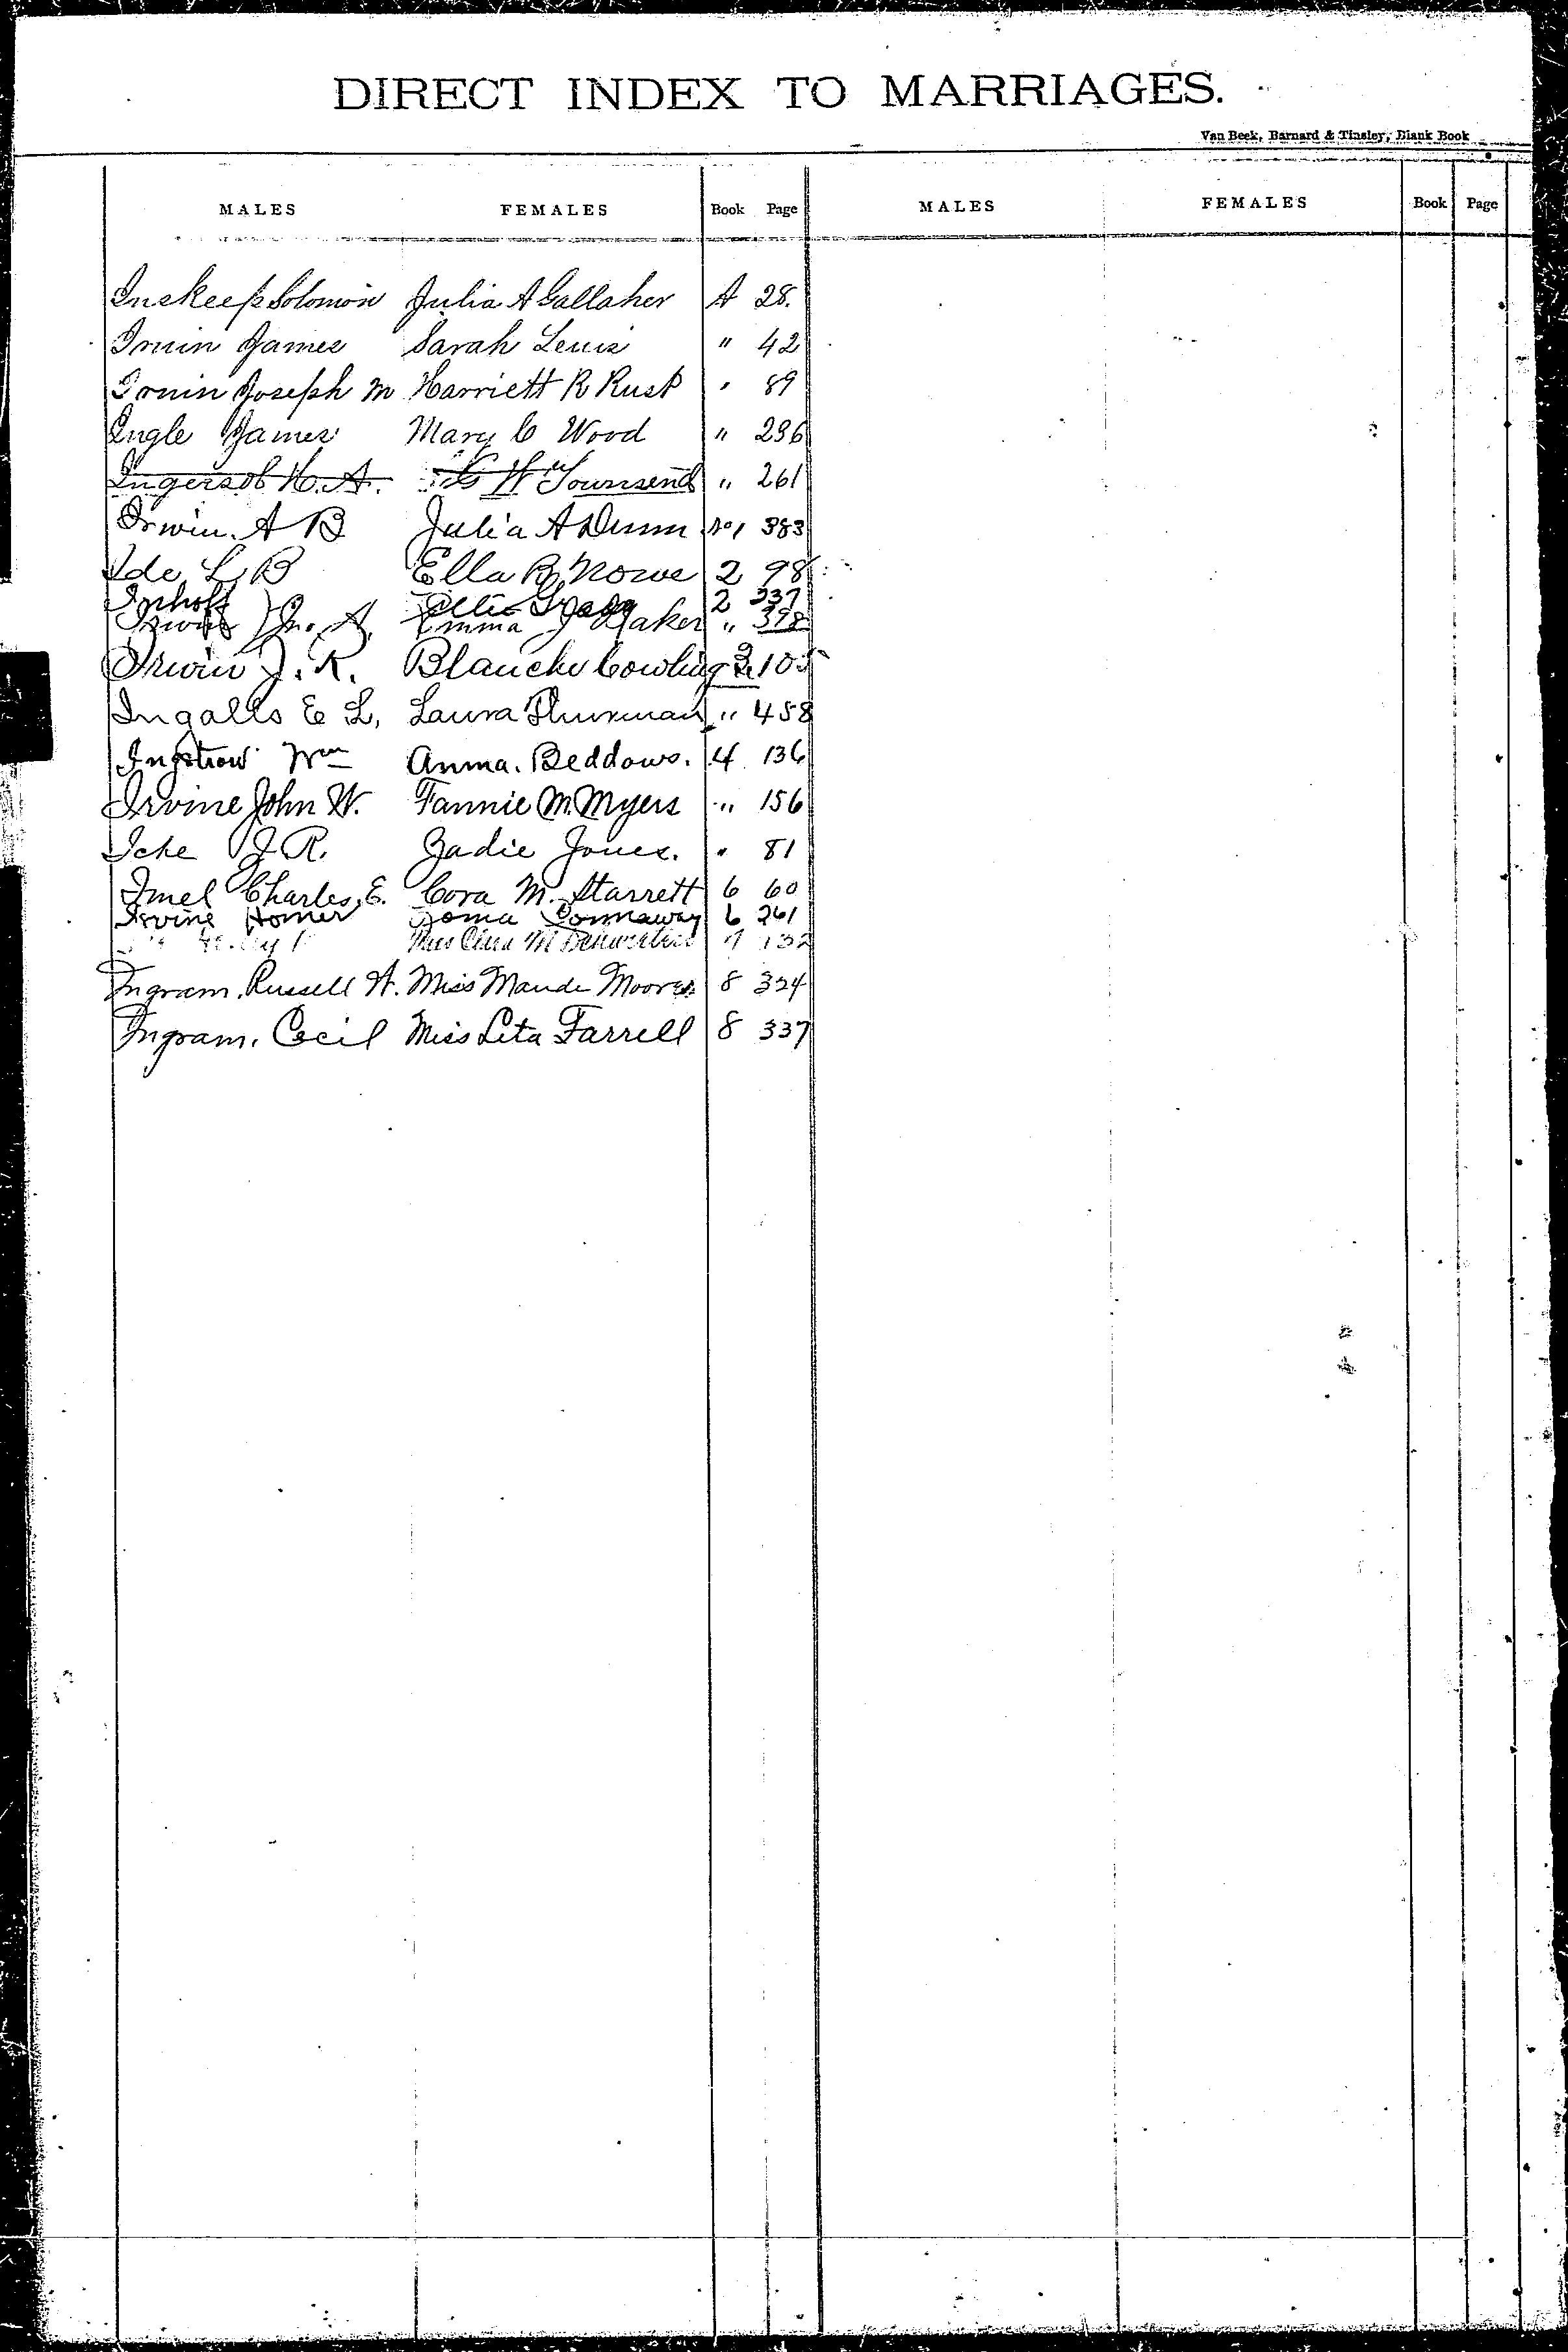 DIRECT INDEX TO MARRIAGES.
Van Beek, Barnard & Tinsley, Blank Book
MALES FEMALES Book Page MALES FEMALES Book Page
Inskeep Solomon Julia A Gallaher A 28.
Irwin James Sarah Lewis " 42
Irwin Joseph M Harriett R Rust " 89
Ingle James Mary C Wood " 236
Ingersol H. A. W Townsend " 261
Irwin. A B Julia A Dunn No 1 383
Ide L B Ella B Nowe 2 98
Imhoff 2 337
Irwin Jr. A. Emma J Baker " 398
Irwin J. R. Blanche Cowling 3 105
Ingalls E L, Laura Thurman " 458
Wm Anna. Beddows. 4 136
Irvine John W. Fannie M. Myers " 156
Iche J R. Zadie Jones. " 81
Imel Charles, E. Cora M. Starrett 6 60
Irvine Homer Roma Connaway 6 261
Miss M 132
Ingram, Russell H. Miss Maude Moore 8 324
Ingram, Cecil Miss Leta Farrell 8 337